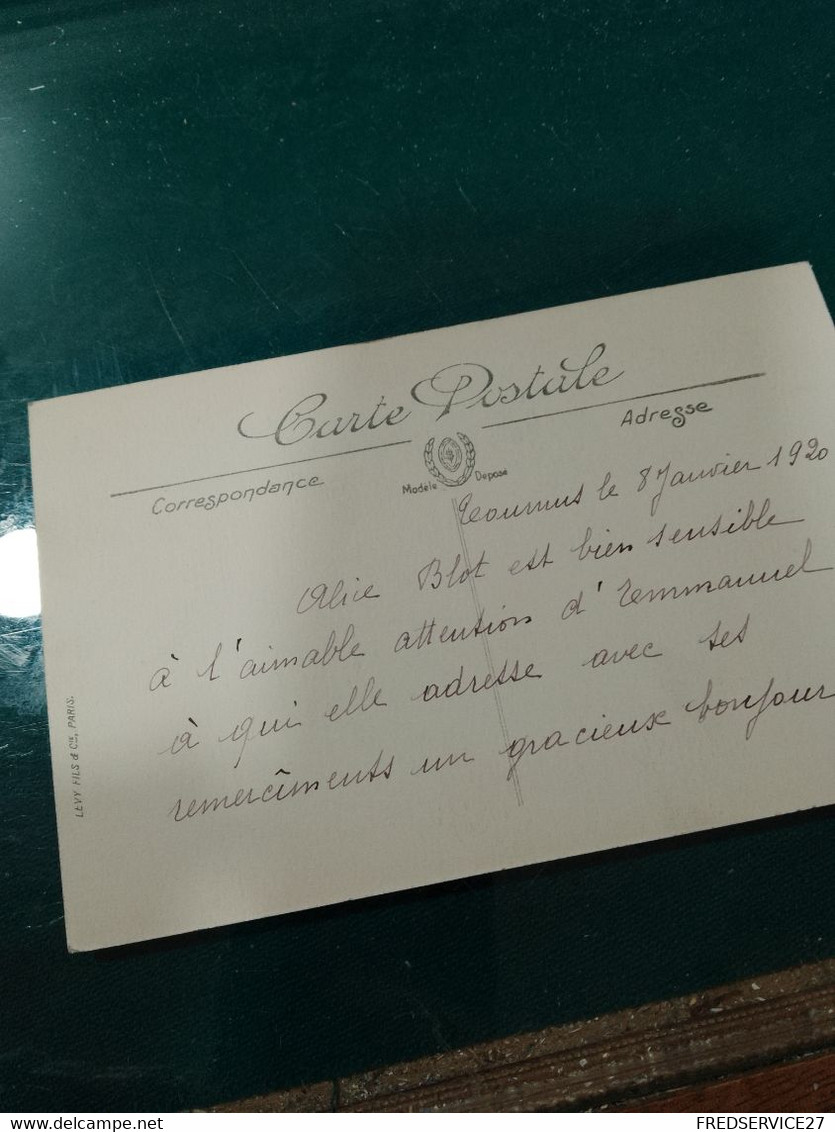 Carte Postale
Correspondance
Adresse
Modèle Déposé
Tournus le 8 Janvier 1920
Alice Blot est bien sensible
à l'aimable attention d'Emmanuel
à qui elle adresse avec ses
remercîments un gracieux bonjour
LEVY FILS & Cie, PARIS.
FREDSERVICE27